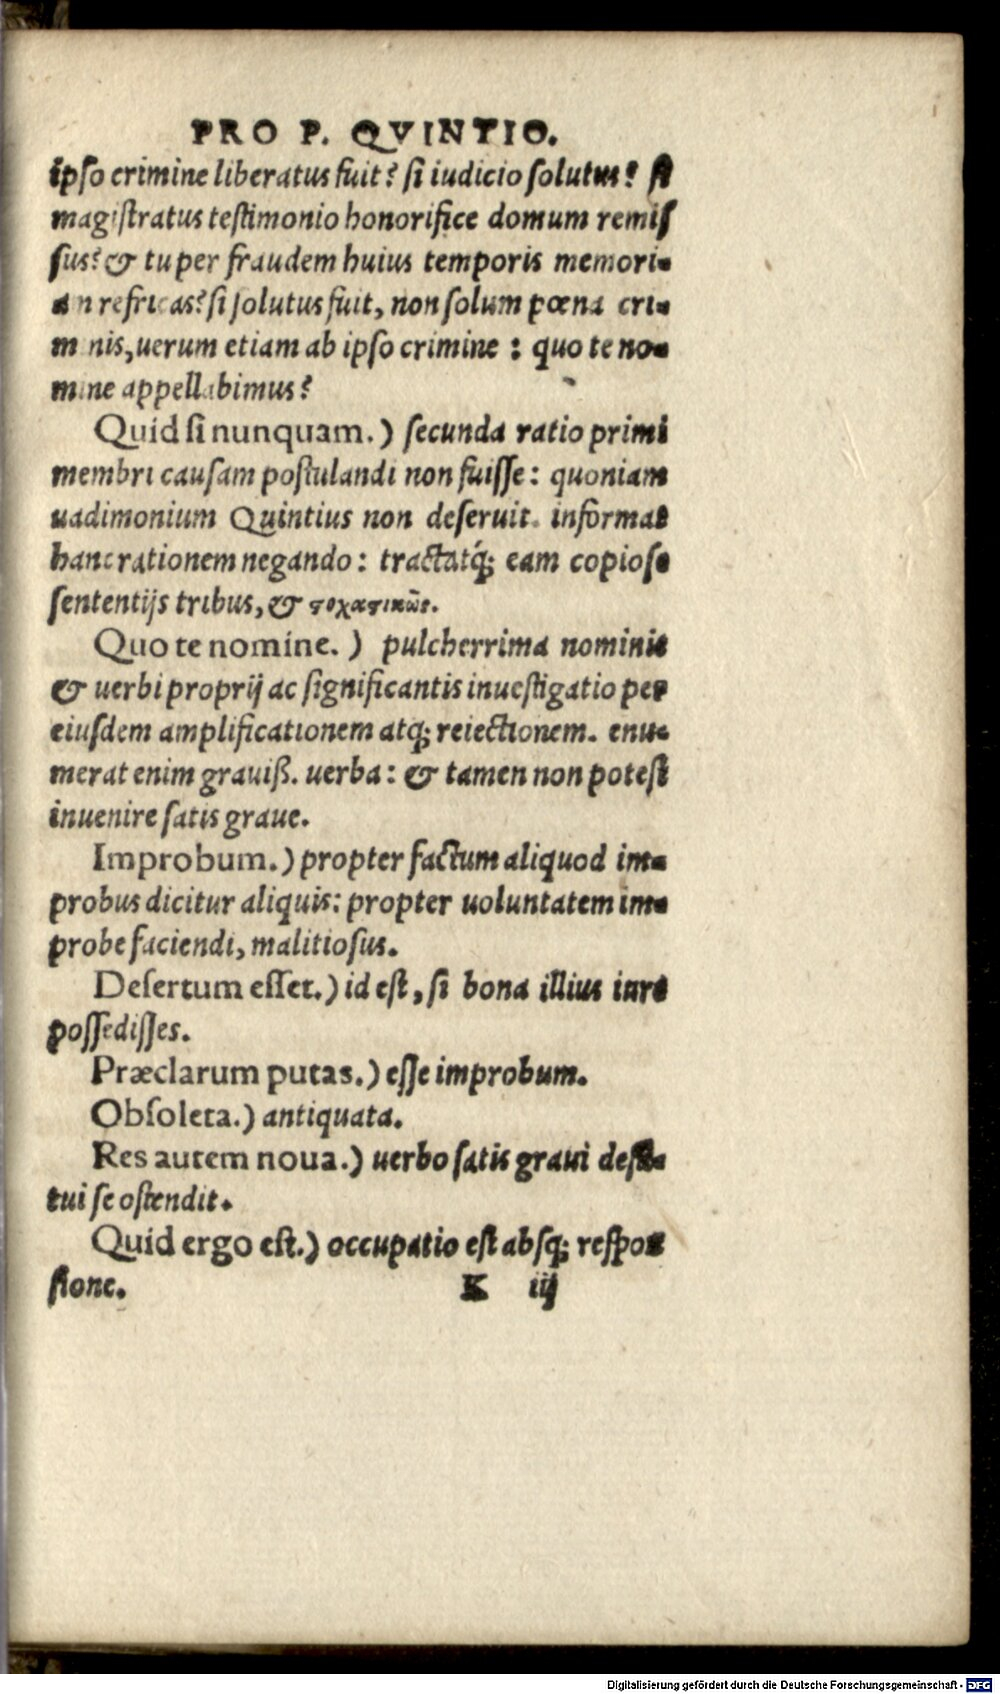 PRO P. QVINTIO.
ipſo crimine liberatus fuit? ſi iudicio ſolutus? ſi
magiſtratus teſtimonio honorifice domum remiſ
ſus? & tu per fraudem huius temporis memori-
am refricas? ſi ſolutus fuit, non ſolum pœna cri-
minis, uerum etiam ab ipſo crimine : quo te no-
mine appellabimus?
Quid ſi nunquam.) ſecunda ratio primi
membri cauſam poſtulandi non fuiſſe: quoniam
uadimonium Quintius non deſeruit. informat
hanc rationem negando: tractatq́; eam copioſe
ſententijs tribus, & στοχαστικῶς.
Quo te nomine.) pulcherrima nominis
& uerbi proprij ac ſignificantis inueſtigatio per
eiuſdem amplificationem atq; reiectionem. enu-
merat enim grauiß. uerba: & tamen non poteſt
inuenire ſatis graue.
Improbum.) propter factum aliquod im-
probus dicitur aliquis: propter uoluntatem im-
probe faciendi, malitioſus.
Deſertum eſſet.) id eſt, ſi bona illius iure
poſſediſſes.
Præclarum putas.) eſſe improbum.
Obſoleta.) antiquata.
Res autem noua.) uerbo ſatis graui deſti-
tui ſe oſtendit.
Quid ergo eſt.) occupatio eſt abſq; reſpon
ſione.
K iij
Digitalisierung gefördert durch die Deutsche Forschungsgemeinschaft - DFG